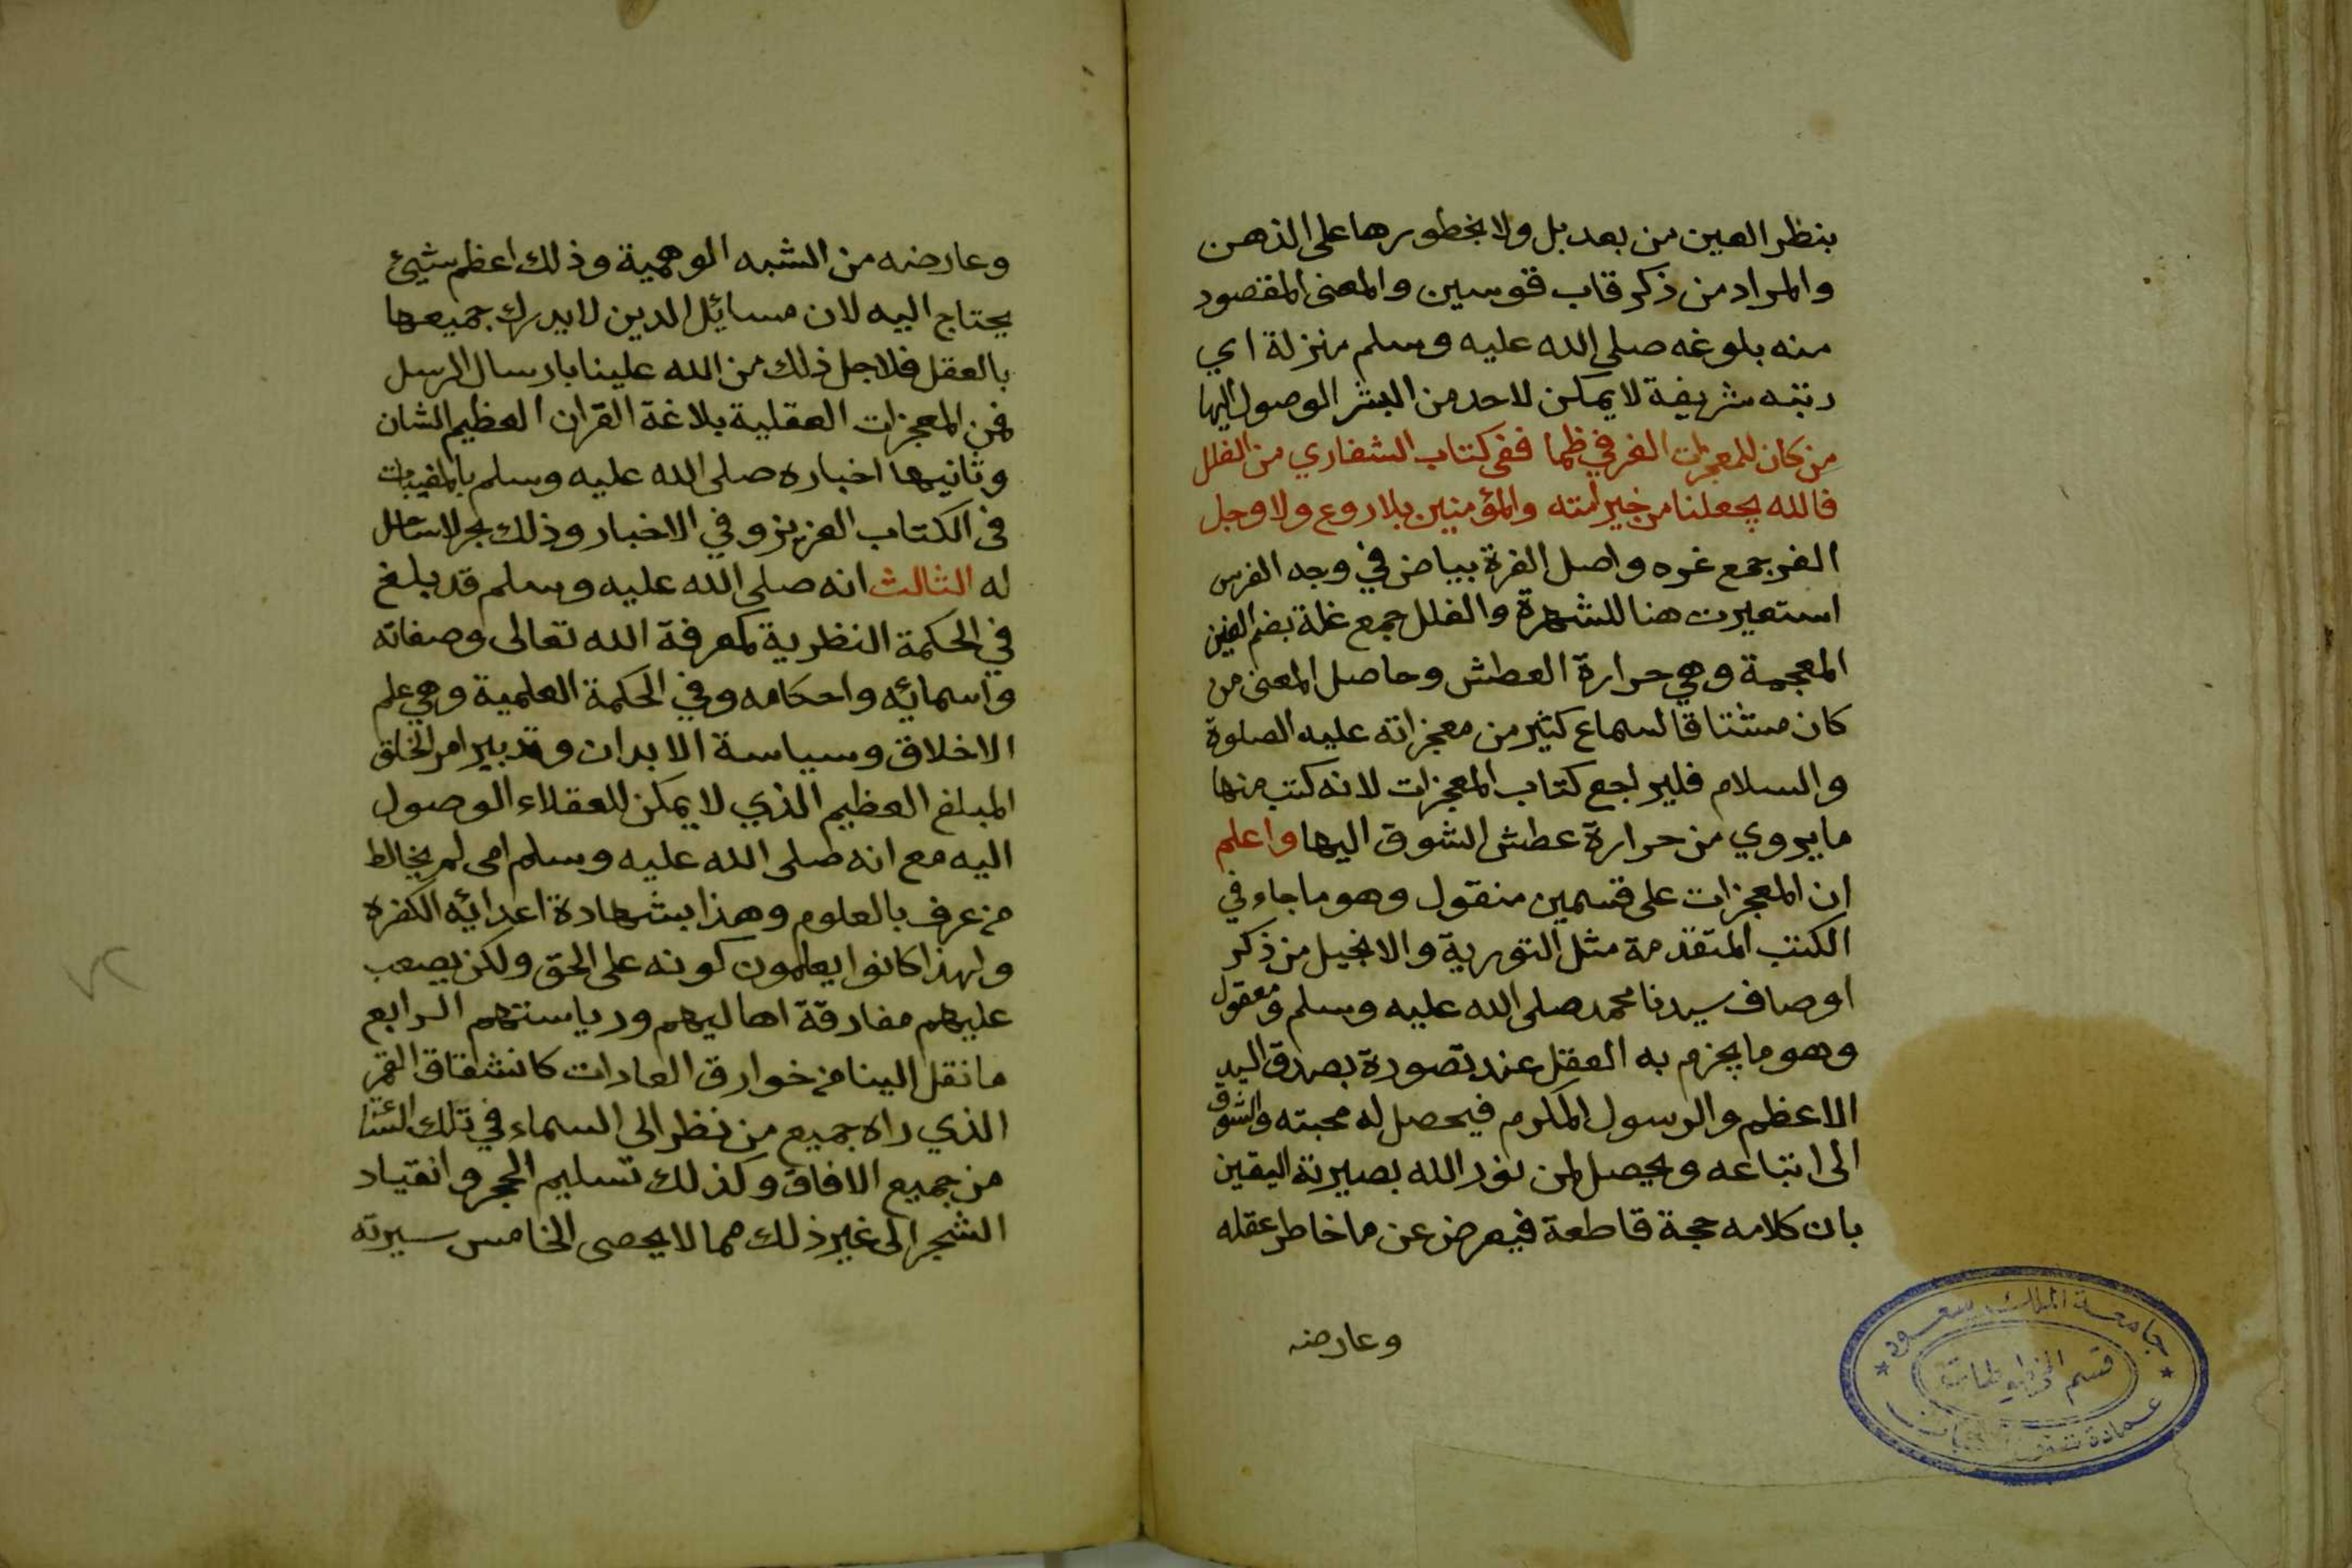 بنظر العين من بعد بل ولا بخطورها على الذهن
والمراد من ذكر قاب قوسين والمعنى المقصود
منه بلوغه صلى الله عليه وسلم منزلة اي
رتبه شريفة لا يمكن لاحد من البشر الوصول اليها
من كان للمعجزات الغر في ظما ففى كتاب الشفاري من الغلل
فالله يجعلنا من خير امته والمؤمنين بلا روع ولا وجل
الغر جمع غره واصل الغرة بياض في وجه الفرس
استعيرت هنا للشهرة والغلل جمع غلة بضم الغين
المعجمة وهي حرارة العطش وحاصل المعنى من
كان مشتاقا لسماع كثير من معجزاته عليه الصلوة
والسلام فليراجع كتاب المعجزات لانه كتب منها
ما يروي من حرارة عطش الشوق اليها واعلم
ان المعجزات على قسمين منقول وهو ما جاء في
الكتب المتقدمة مثل التورية والانجيل من ذكر
اوصاف سيدنا محمد صلى الله عليه وسلم ومعقول
وهو ما يجزم به العقل عند تصورة بصدق السيد
الاعظم والرسول المكرم فيحصل له محبته والشوق
الى اتباعه ويحصل لمن نور الله بصيرته اليقين
بان كلامه حجة قاطعة فيعرض عن ما خاطر عقله
وعارضه
جامعة الملك سعود
قسم المخطوطات
عمادة شئون المكتبات
وعارضه من الشبه الوهمية وذلك اعظم شيئ
يحتاج اليه لان مسائل الدين لا يدرك جميعها
بالعقل فلاجل ذلك من الله علينا بارسال الرسل
فمن المعجزات العقلية بلاغة القران العظيم الشان
وثانيها اخباره صلى الله عليه وسلم بالمغيبات
فى الكتاب العزيز وفي الاخبار وذلك بحر لا ساحل
له الثالث انه صلى الله عليه وسلم قد بلغ
في الحكمة النظرية كمعرفة الله تعالى وصفاته
واسمائه واحكامه وفي الحكمة العلمية وهي علم
الاخلاق وسياسة الابدان وتدبير امر الخلق
المبلغ العظيم الذي لا يمكن للعقلاء الوصول
اليه مع انه صلى الله عليه وسلم امى لم يخالط
من عرف بالعلوم وهذا بشهادة اعدائه الكفره
ولهذا كانوا يعلمون كونه على الحق ولكن يصعب
عليهم مفارقة اهاليهم ورياستهم الرابع
ما نقل الينا من خوارق العادات كانشقاق القمر
الذي راه جميع من نظر الى السماء في تلك
من جميع الافاق وكذلك تسليم الحجر وانقياد
الشجر الى غير ذلك مما لا يحصى الخامس سيرته